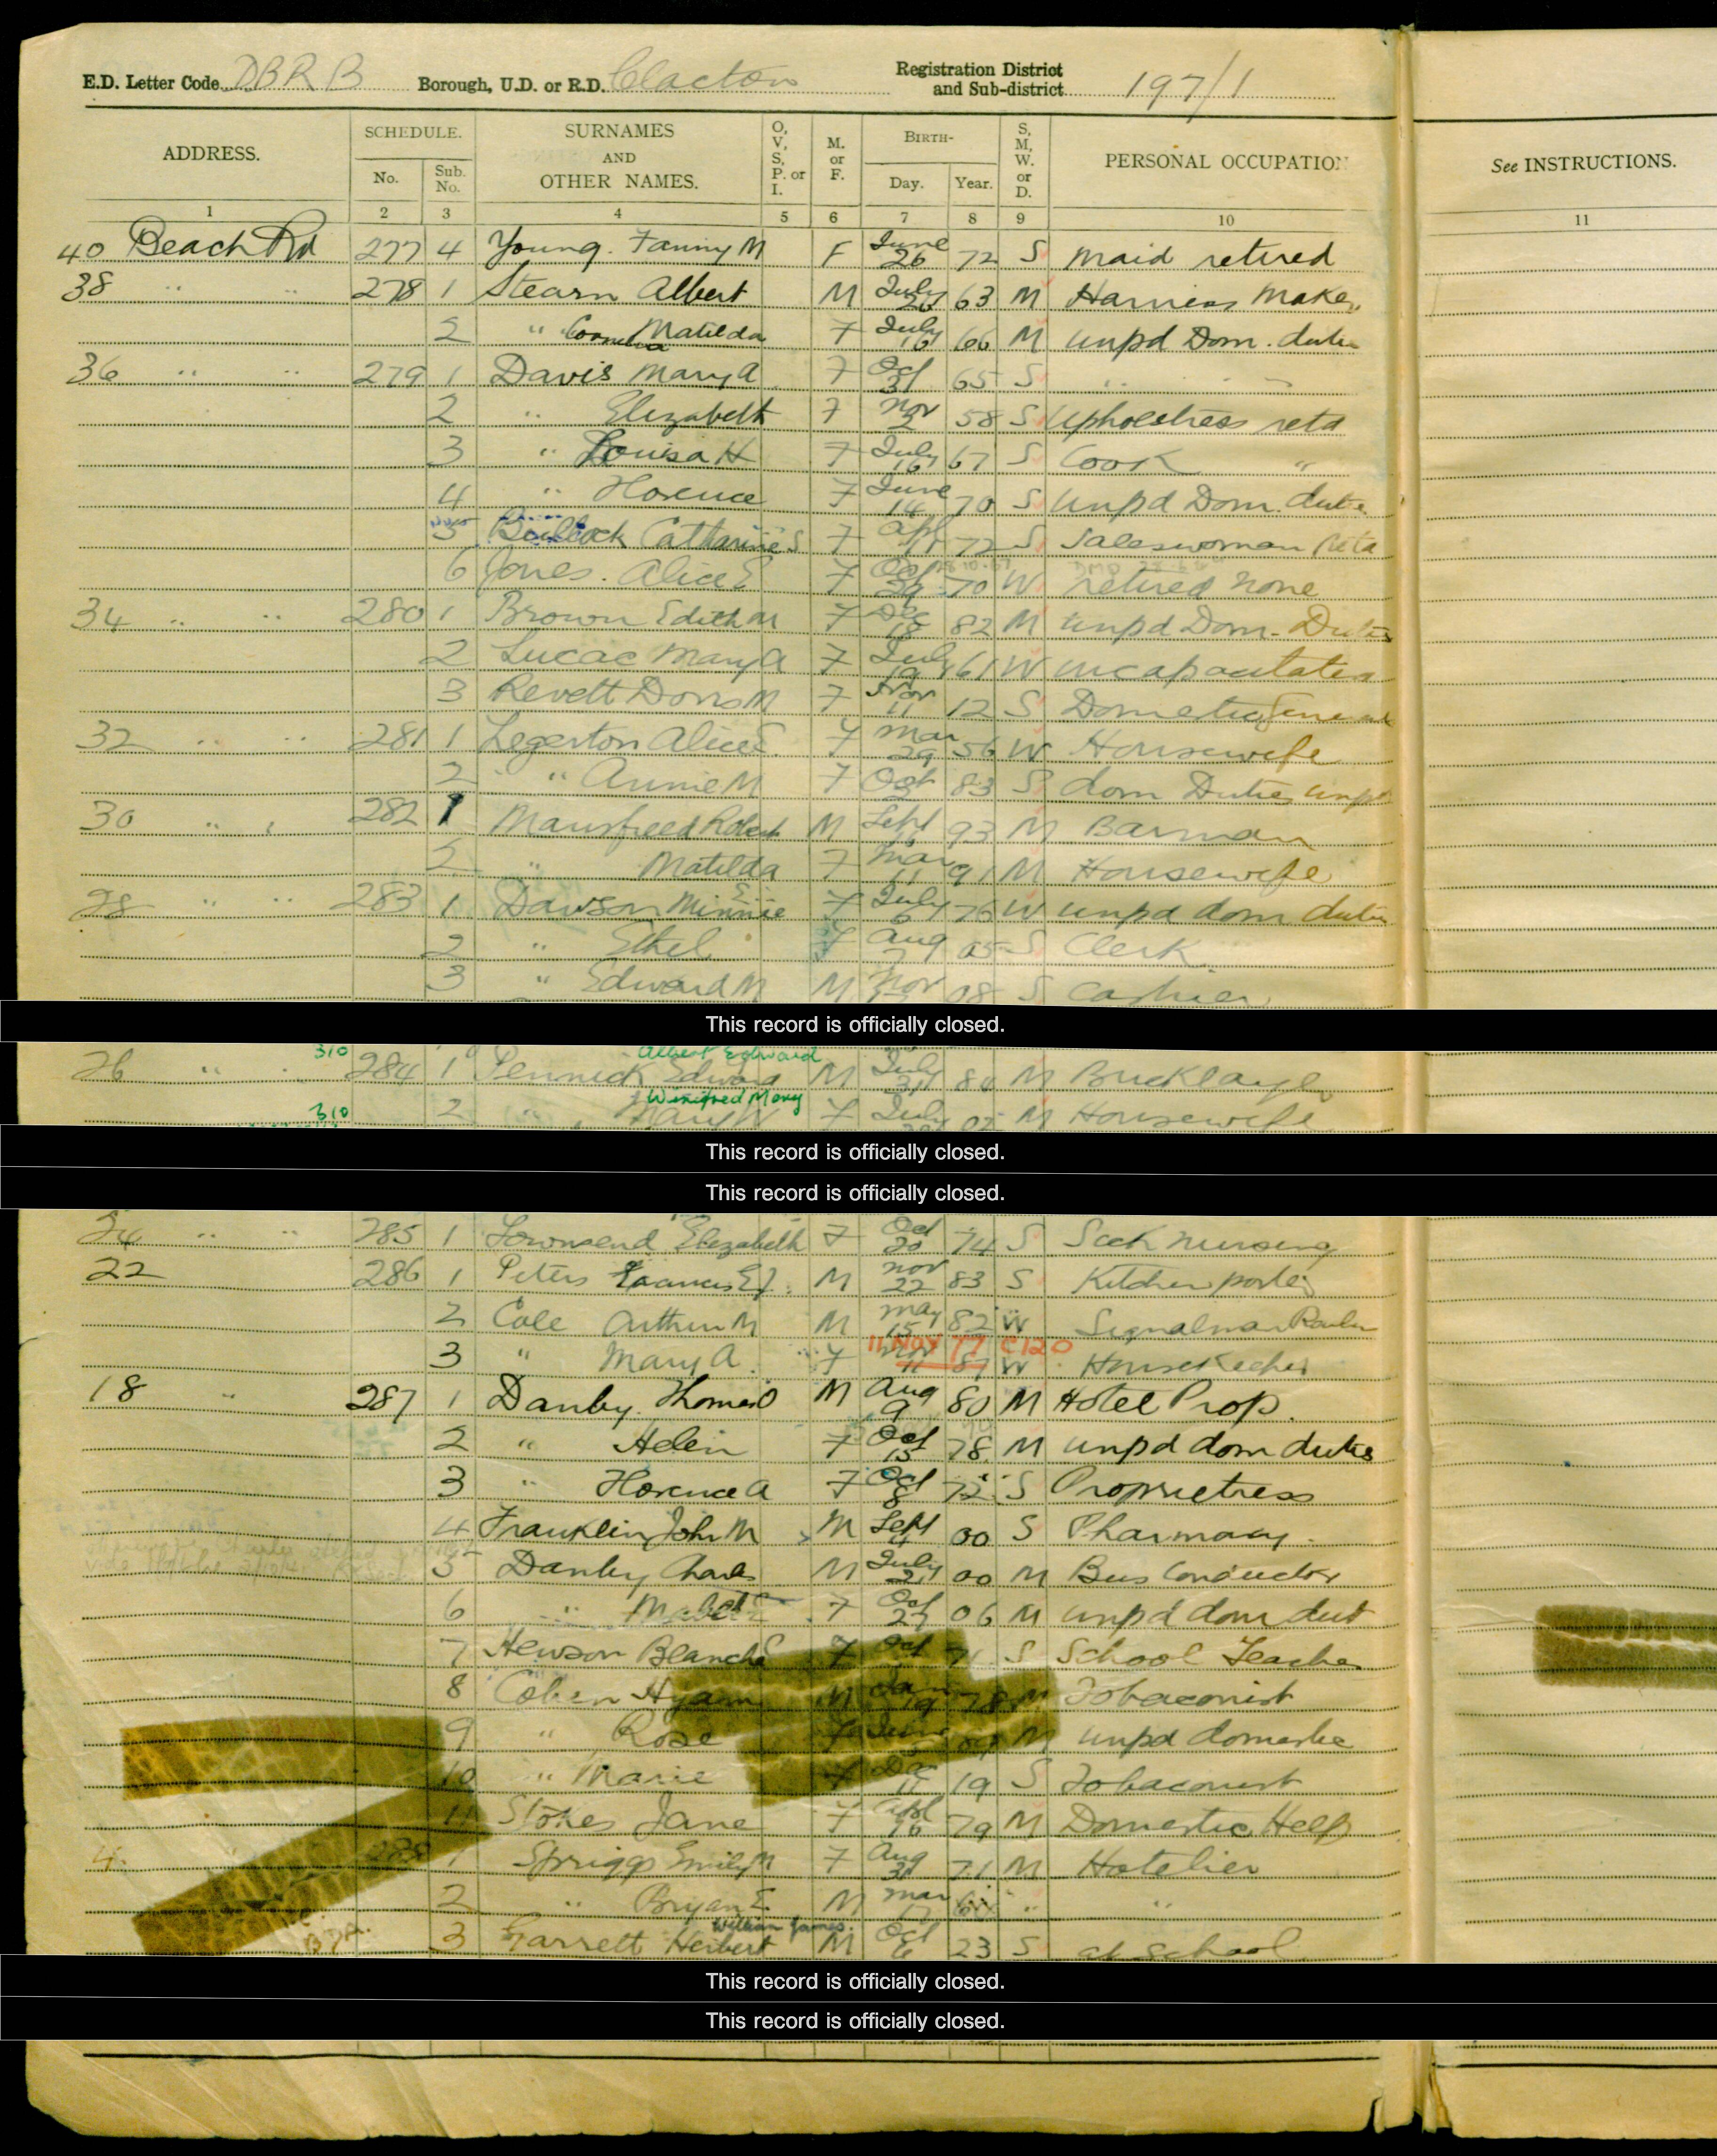 E.D. Letter Code DBR B Borough, U.D. or R.D. Clacton Registration District and Sub-district 197/1
ADDRESS. SCHEDULE. No. Sub. No. SURNAMES AND OTHER NAMES. O, V, S, P. or I. M. or F. BIRTH- Day. Year. S, M, W. or D. PERSONAL OCCUPATION See INSTRUCTIONS.
1 2 3 4 5 6 7 8 9 10 11
40 Beach Rd 277 4 Young. Fanny M F June 26 72 S maid retired
38 " " 278 1 Stearn Albert M July 63 M Harness Maker
2 " Cornelia Matilda F July 16 66 M unpd Dom. duties
36 " " 279 1 Davis Mary A F Oct 31 65 S " "
2 " Elizabeth F Nov 2 58 S Upholstress retd
3 " Louisa H F July 16 67 S Cook "
4 " Florence F June 14 70 S unpd Dom. duties
5 Bullock Catharine S F Apl 11 72 S Saleswoman retd
6 Jones. Alice E F 70 W retired none
34 " " 280 1 Brown Edith M F Dec 18 82 M unpd Dom. Duties
2 Lucas Mary A F July 19 61 W incapacitated
3 Revett Doris M F Nov 11 12 S Domestic
32 " " 281 1 Legerton Alice E F Mar 29 56 W Housewife
2 " Annie M F Oct 83 S dom Duties unpd
30 " " 282 1 Mansfreed Robert M Sept 93 M Barman
2 " Matilda F Mar 11 91 M Housewife
28 " " 283 1 Dawson Minnie E F July 6 76 W unpd dom duties
2 " Ethel F Aug 05 S Clerk
3 " Edward M M Nov 08 S Cashier
This record is officially closed.
310 Albert Edward
26 " " 284 1 Pennick Edward M July 31 M Bricklayer
Winifred Mary
310 2 " Mary W F July M Housewife
This record is officially closed.
This record is officially closed.
24 " " 285 1 Townsend Elizabeth F Oct 20 74 S Sick nursing
22 286 1 Peters Francis E J. M Nov 22 83 S Kitchen porter
2 Cole Arthur M M May 15 82 W Signalman
11 NOV 77 C120
3 " Mary A. F 11 87 W Housekeeper
18 " 287 1 Danby. Thomas O M Aug 9 80 M Hotel Prop.
2 " Helen F Oct 15 78 M unpd dom duties
3 " Florence A F Oct 8 72 S Proprietress
4 Franklin John M M Sept 4 00 S Pharmacy.
5 Danby Charles M July 21 00 M Bus Conductor
6 " Mabel E F Oct 27 06 M unpd dom dut
7 Hewson Blanche E F Oct 71 S School Teacher
8 Cohen Hyam M Jan 19 78 M Tobaconist
9 " Rose F June M unpd domestic
10 " Marie F Dec 11 19 S Tobaconist
11 Stokes Jane F Apl 16 79 M Domestic Help
4 288 1 Spriggs Emily M F Aug 30 71 M Hotelier
2 " Bryan E. M Mar 17 " "
William James.
3 Garrett Herbert M Oct 6 23 S at school
This record is officially closed.
This record is officially closed.